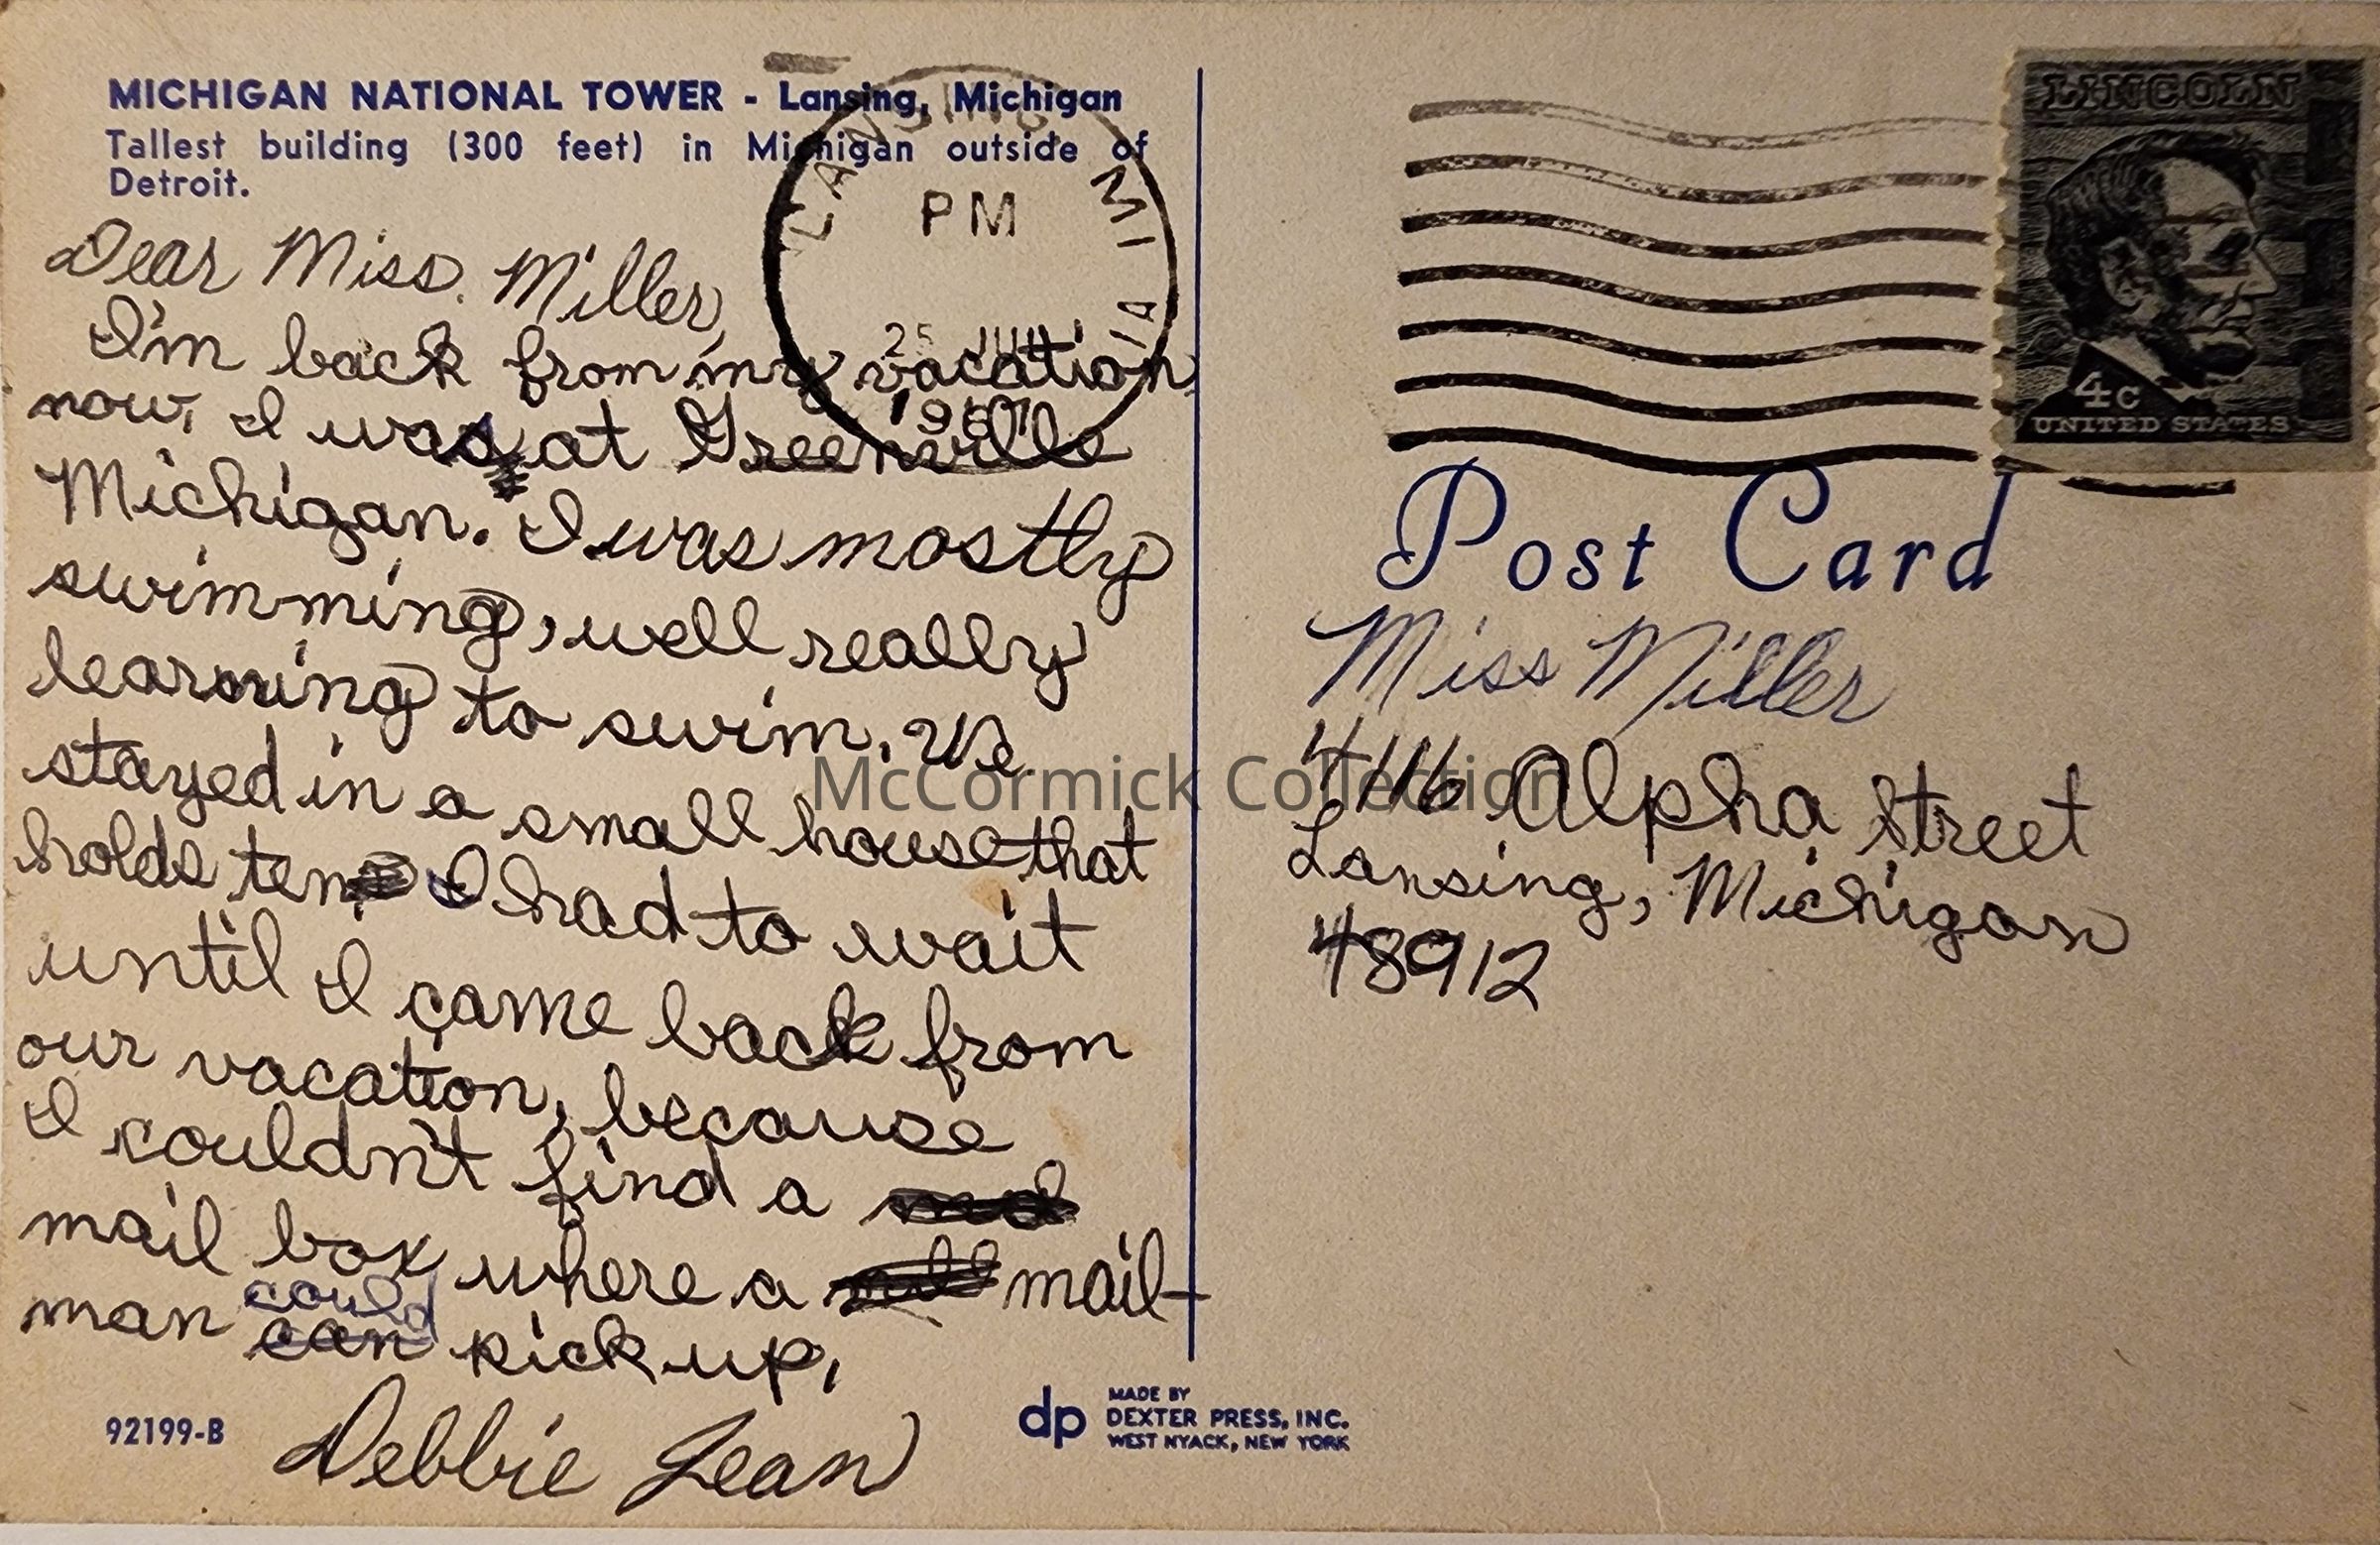 MICHIGAN NATIONAL TOWER - Lansing, Michigan
Tallest building (300 feet) in Michigan outside of
Detroit.
Dear Miss. Miller,
I'm back from my vacation
now, I was at Greenville
Michigan. I was mostly
swimming, well really
learning to swim. We
stayed in a small house that
holds ten I had to wait
until I came back from
our vacation, because
I couldn't find a
mail box where a mail-
could
man can pick up,
Debbie Jean
92199-B
dp
MADE BY
DEXTER PRESS, INC.
WEST NYACK, NEW YORK
LANSING MI
PM
25 JUL
LINCOLN
4c
UNITED STATES
Post Card
Miss Miller
4116 Alpha Street
Lansing, Michigan
48912
McCormick Collection